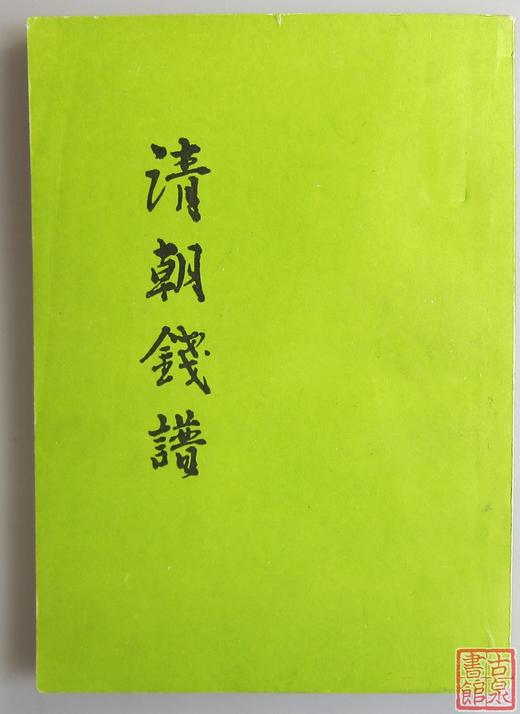 清朝錢譜
古泉
書館